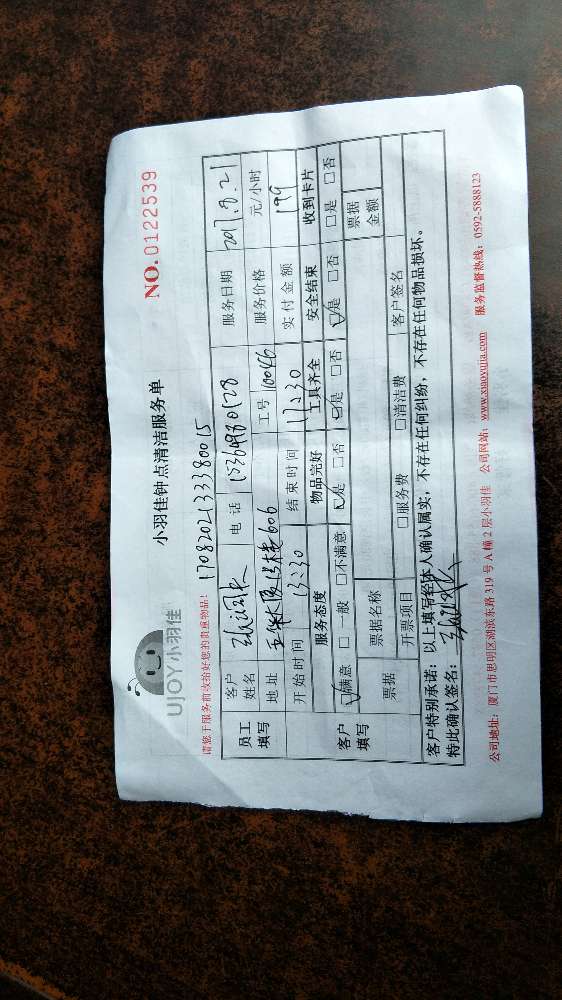 UJOY小羽佳
小羽佳钟点清洁服务单
NO.0122539
请您于服务前收拾好您的贵重物品!
1708202133380015
员工填写 客户姓名 电话 服务日期 2017.8.21
地址 606 工号 110046 服务价格 元/小时
开始时间 13:30 结束时间 17:30 实付金额 199
客户填写 服务态度 物品完好 工具齐全 安全结束 收到卡片
☑满意 □一般 □不满意 ☑是 □否 ☑是 □否 ☑是 □否 □是 □否
票据 票据名称 票据金额
开票项目 □服务费 □清洁费 客户签名
客户特别承诺:以上填写经本人确认属实,不存在任何纠纷,不存在任何物品损坏。
特此确认签名:
公司地址:厦门市思明区湖滨东路319号A幢2层小羽佳 公司网站:www.xiaoyujia.com 服务监督热线:0592-5888123